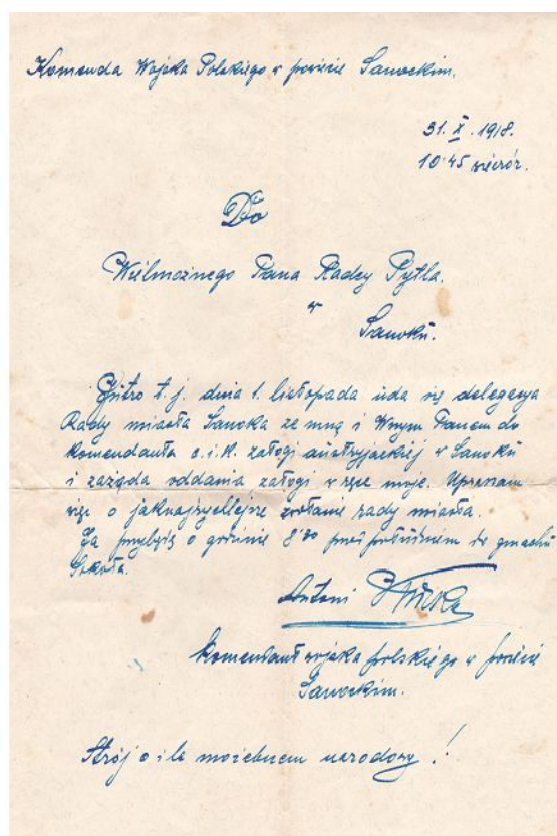 Komenda Wojska Polskiego w powiecie Sanockim.
31. X. 1918.
10.45 wieczór.
Do
Wielmożnego Pana Radcy Pytla.
w
Sanoku.
Jutro t.j. dnia 1. listopada uda się delegacya
Rady miasta Sanoka ze mną i Wnym Panem do
Komendanta c.i.k. załogi austryjackiej w Sanoku
i zażąda oddania załogi w ręce moje. Upraszam
więc o zwołanie rady miasta.
Ja przybędę o godzinie 8.30 przed południem do gmachu
Sokoła.
Antoni
Komendant wojska polskiego w powiecie
Sanockim.
Strój o ile możebnem narodowy!